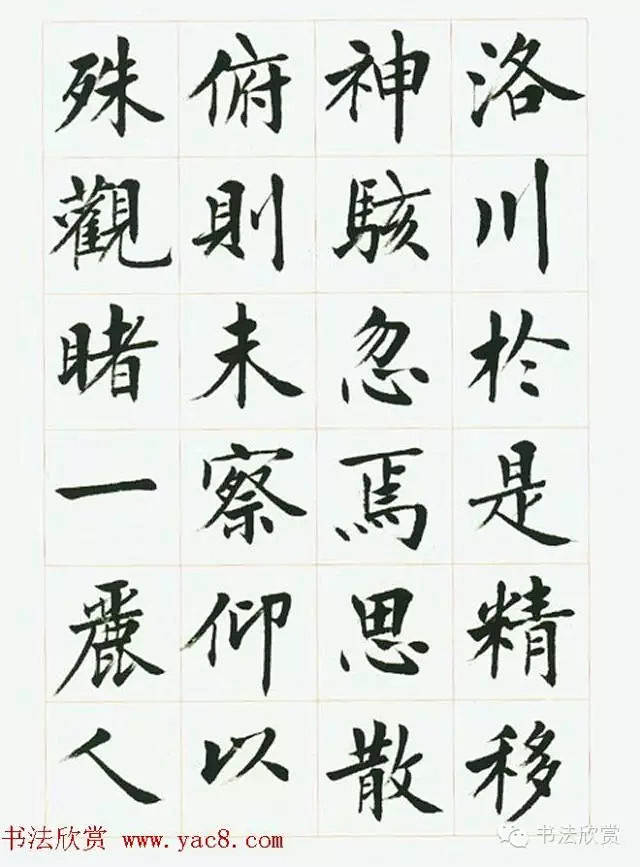 洛川於是精移
神駭忽焉思散
俯則未察仰以
殊觀睹一麗人
书法欣赏 www.yac8.com
书法欣赏